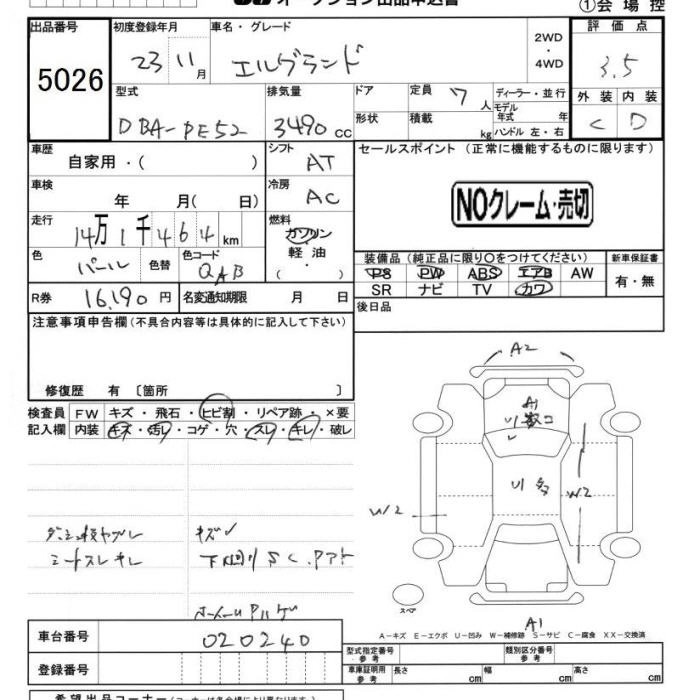 オークション出品申込書
①会場控
出品番号 初度登録年月 車名・グレード 2WD ・ 4WD 評価点
5026 23 11月 エルグランド 3.5
型式 排気量 ドア 定員 7人 ディーラー・並行 外装 内装
DBA-PE52 3490cc 形状 積載 kg モデル年式 年 ハンドル 左・右 C D
車歴 自家用・( ) シフト AT セールスポイント (正常に機能するものに限ります)
車検 年 月( 日) 冷房 AC
NOクレーム・売切
走行 14万1千464km 燃料 ガソリン 軽油 ・ ( )
色 パール 色替 色コード QAB
装備品 (純正品に限り〇をつけてください) 新車保証書
PS PW ABS エアB AW 有・無
SR ナビ TV カワ
R券 16,190円 名変通知期限 月 日 後日品
注意事項申告欄(不具合内容等は具体的に記入して下さい)
修復歴 有 〔箇所 〕
検査員 FW キズ・飛石・ヒビ割・リペア跡・×要
記入欄 内装 キズ・汚リ・コゲ・穴・スレ・キレ・破レ
A2
A1
リ数コ
リ多
W2
W2
キズ
シートスレ キレ 下回りSC.
スペア
A1
A-キズ E-エクボ U-凹み W-補修跡 S-サビ C-腐食 XX-交換済
車台番号 020240
型式指定番号 参考 類別区分番号 参考
登録番号
車庫証明用 参考 長さ cm 幅 cm 高さ cm
希望出品コーナー